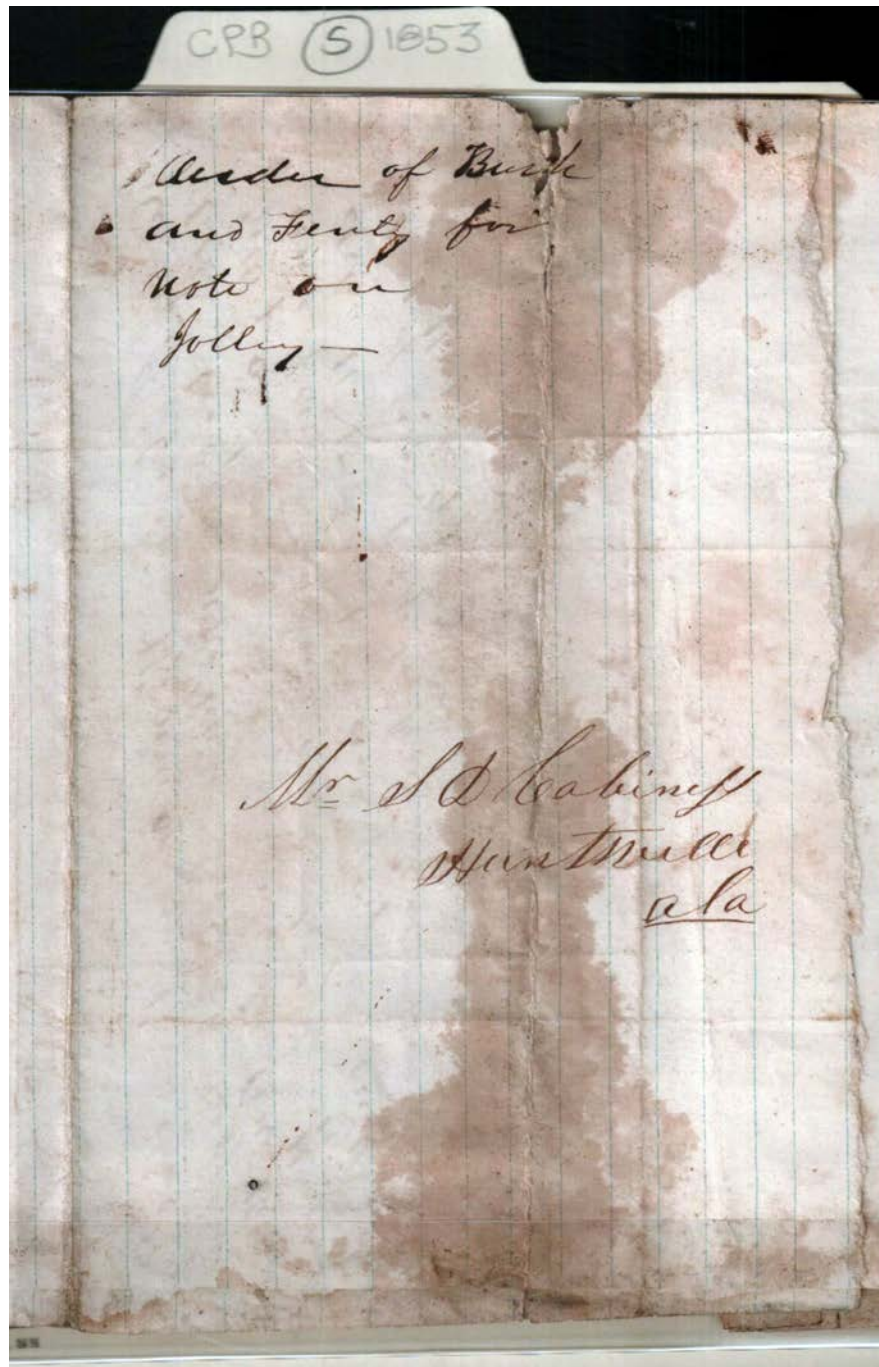 CPB (5) 1853
Order of Burk
and Fently for
Note on
Jolley —
Mr S D Cabiness
Huntsville
ala